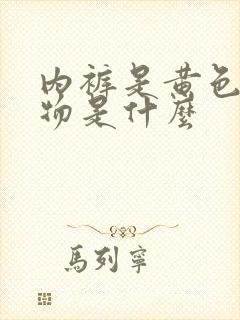 内裤是黄色
物是什麼
馬列寧